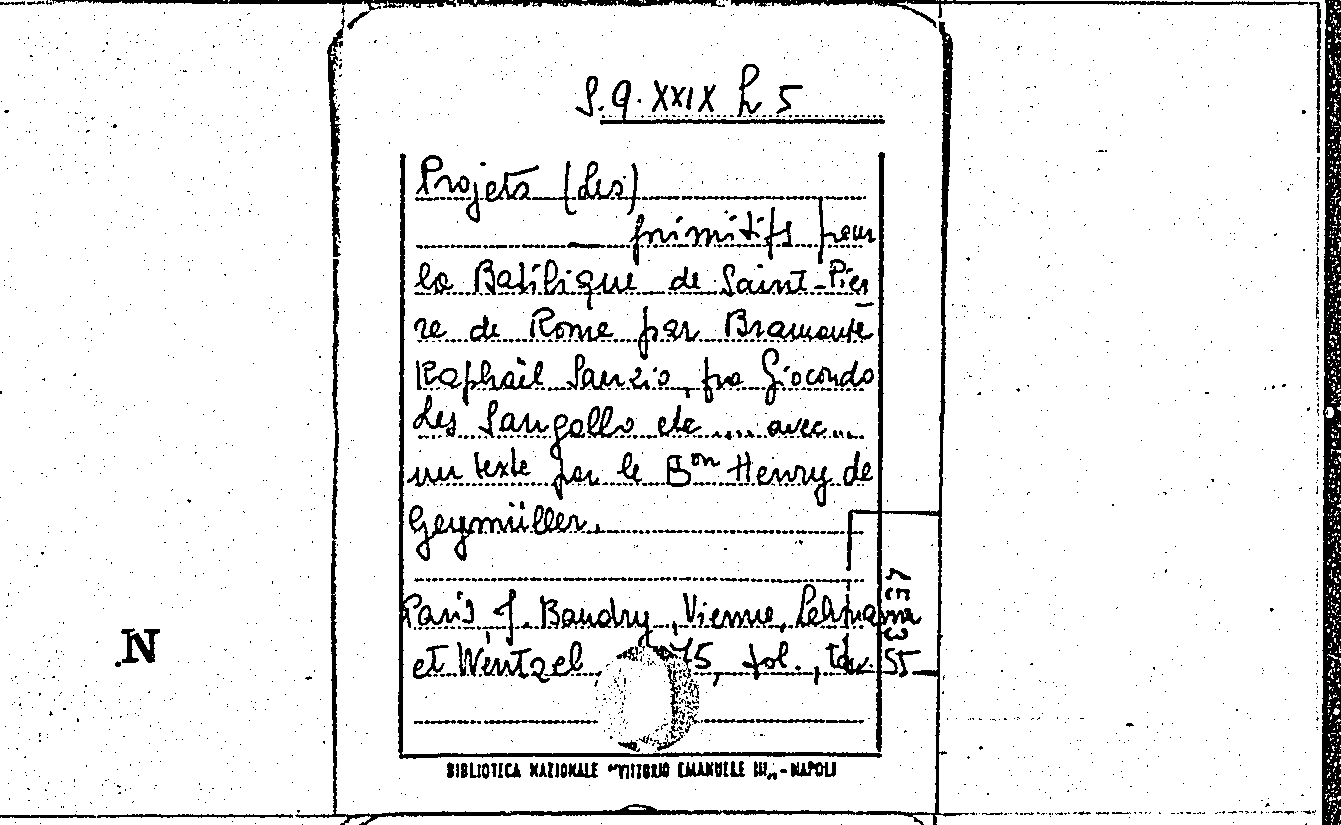 S.q. XXIX h 5
Projets (Les)
primitifs pour
la Basilique de Saint-Pier
re de Rome par Bramante
Raphaël Sanzio, fra Giocondo
Les Sangallo etc .... avec...
un texte par le Bon Henry de
Geymüller.
Paris, J. Baudry, Vienne, Lehmann
et Wentzel, 75, fol., tav. 55
N
BIBLIOTECA NAZIONALE "VITTORIO EMANUELE III„ - NAPOLI